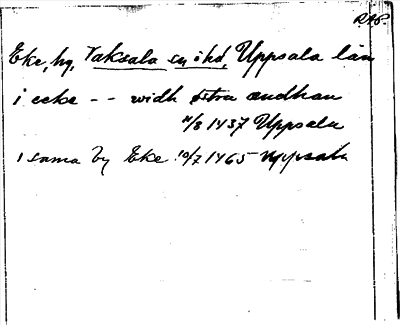 RAP.
Eke, by, Vaksala sn o hd, Uppsala län
i ecke -- widh östra aændhan
11/8 1437 Uppsala
i sama by Eke 10/7 1465 Uppsala